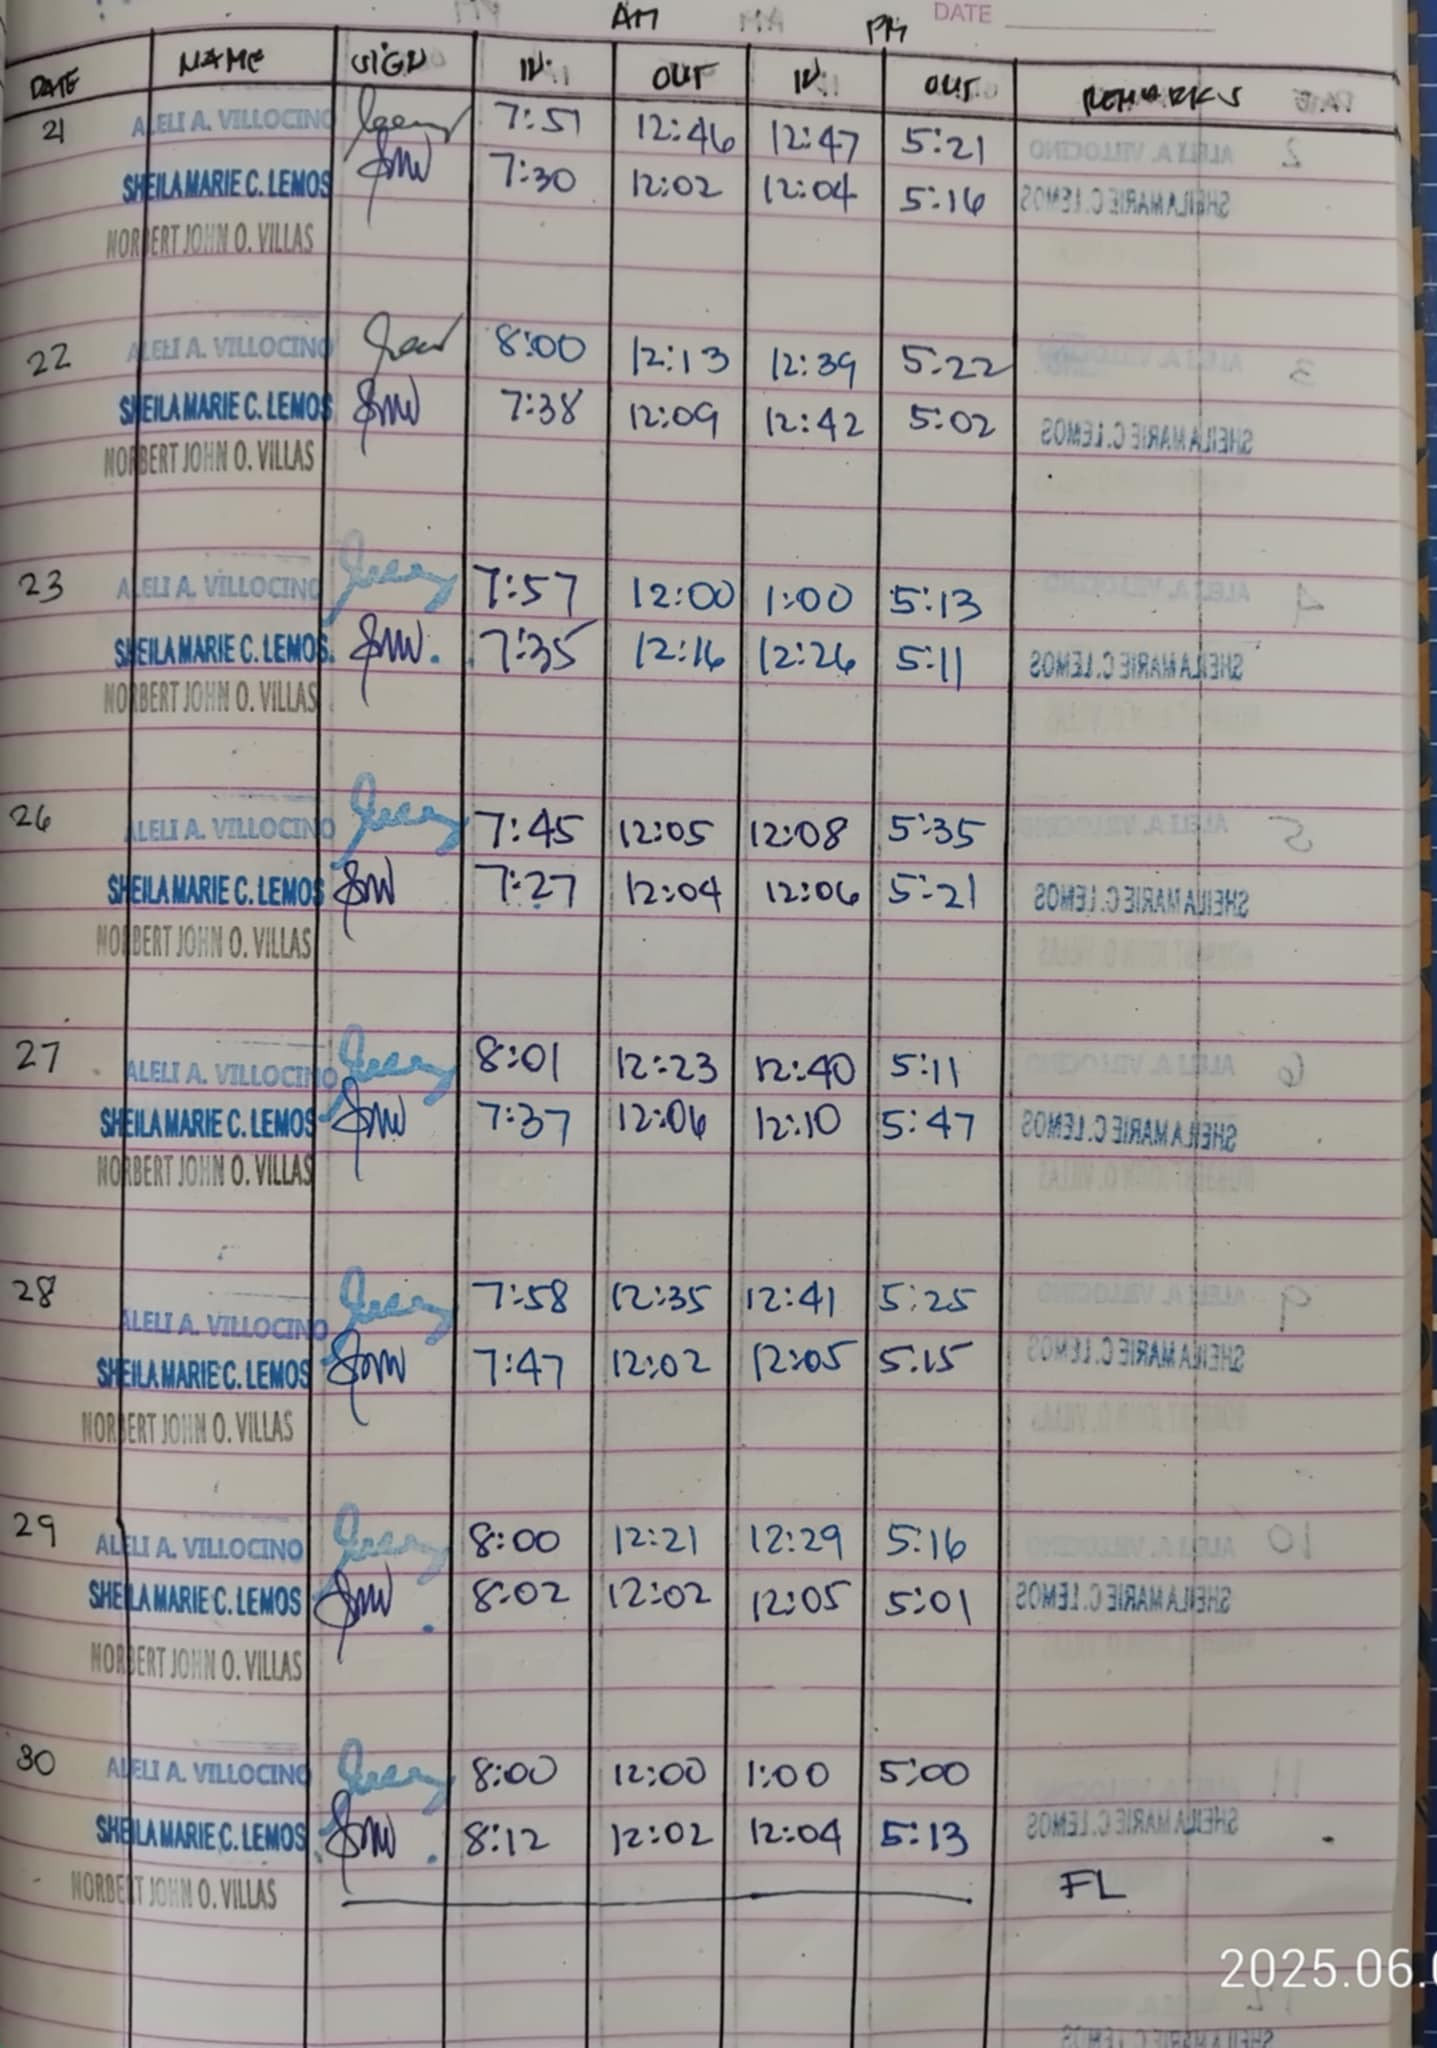 AM PM DATE
DATE NAME SIGN IN OUT IN OUT REMARKS
21 ALELI A. VILLOCINO 7:51 12:46 12:47 5:21
SHEILA MARIE C. LEMOS 7:30 12:02 12:04 5:16
NORBERT JOHN O. VILLAS
22 ALELI A. VILLOCINO 8:00 12:13 12:39 5:22
SHEILA MARIE C. LEMOS 7:38 12:09 12:42 5:02
NORBERT JOHN O. VILLAS
23 ALELI A. VILLOCINO 7:57 12:00 1:00 5:13
SHEILA MARIE C. LEMOS 7:35 12:16 12:26 5:11
NORBERT JOHN O. VILLAS
26 ALELI A. VILLOCINO 7:45 12:05 12:08 5:35
SHEILA MARIE C. LEMOS 7:27 12:04 12:06 5:21
NORBERT JOHN O. VILLAS
27 ALELI A. VILLOCINO 8:01 12:23 12:40 5:11
SHEILA MARIE C. LEMOS 7:37 12:06 12:10 5:47
NORBERT JOHN O. VILLAS
28 ALELI A. VILLOCINO 7:58 12:35 12:41 5:25
SHEILA MARIE C. LEMOS 7:47 12:02 12:05 5:15
NORBERT JOHN O. VILLAS
29 ALELI A. VILLOCINO 8:00 12:21 12:29 5:16
SHEILA MARIE C. LEMOS 8:02 12:02 12:05 5:01
NORBERT JOHN O. VILLAS
30 ALELI A. VILLOCINO 8:00 12:00 1:00 5:00
SHEILA MARIE C. LEMOS 8:12 12:02 12:04 5:13
NORBERT JOHN O. VILLAS FL
2025.06.